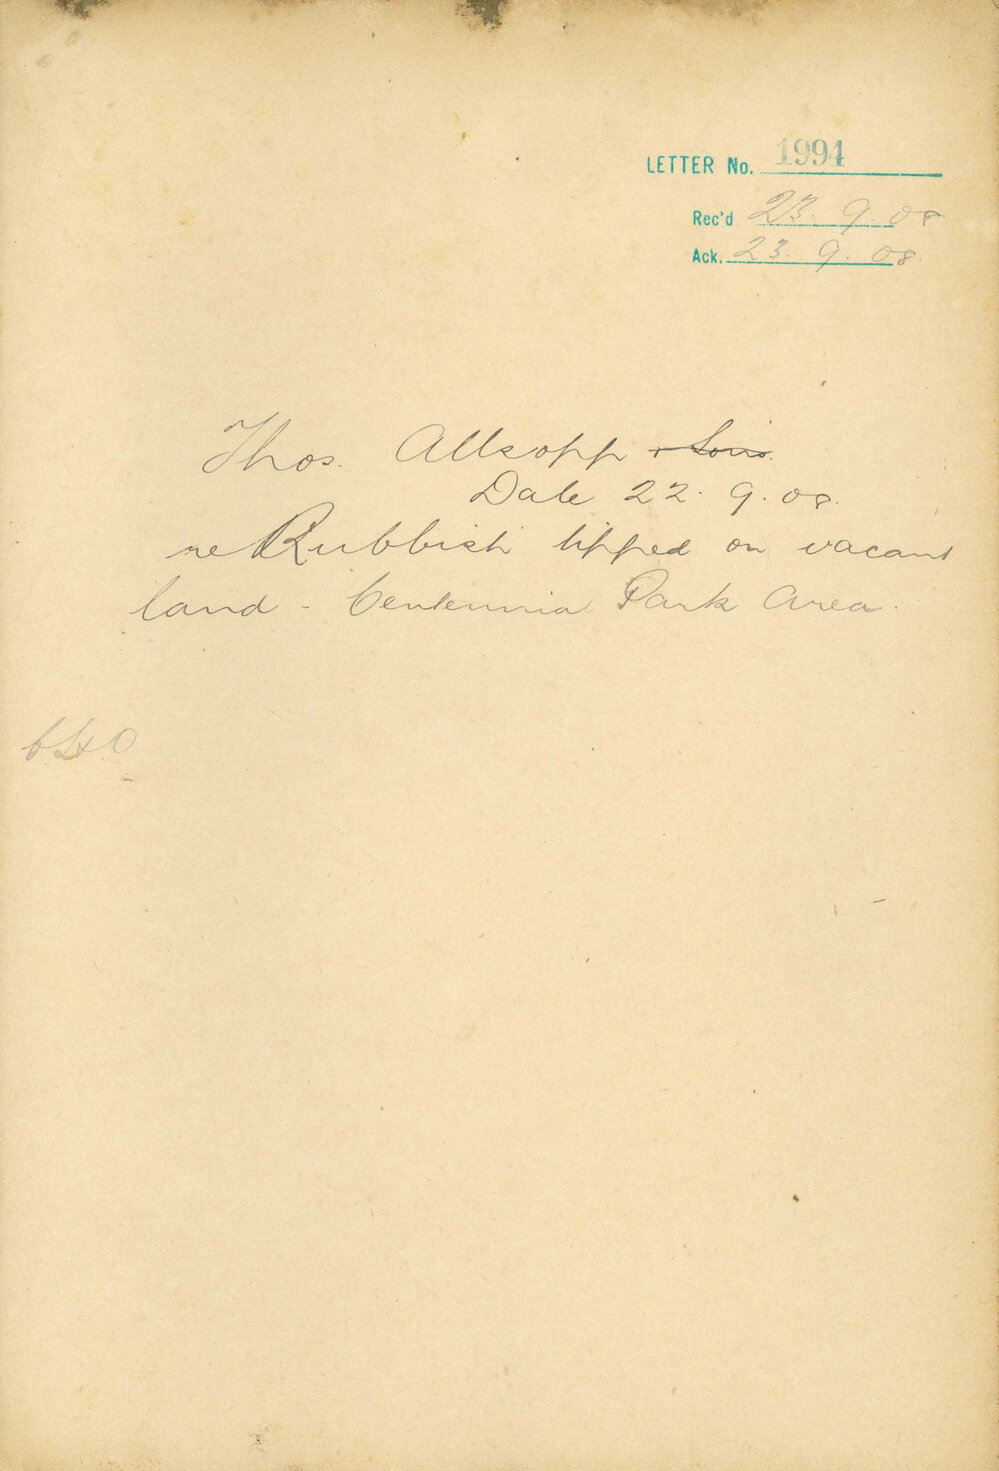 LETTER No. 1994
Rec'd 23. 9. 08
Ack. 23. 9. 08.
Thos. Allsopp & Sons.
Date 22. 9. 08.
re Rubbish tipped on vacant
land - Centennial Park Area.